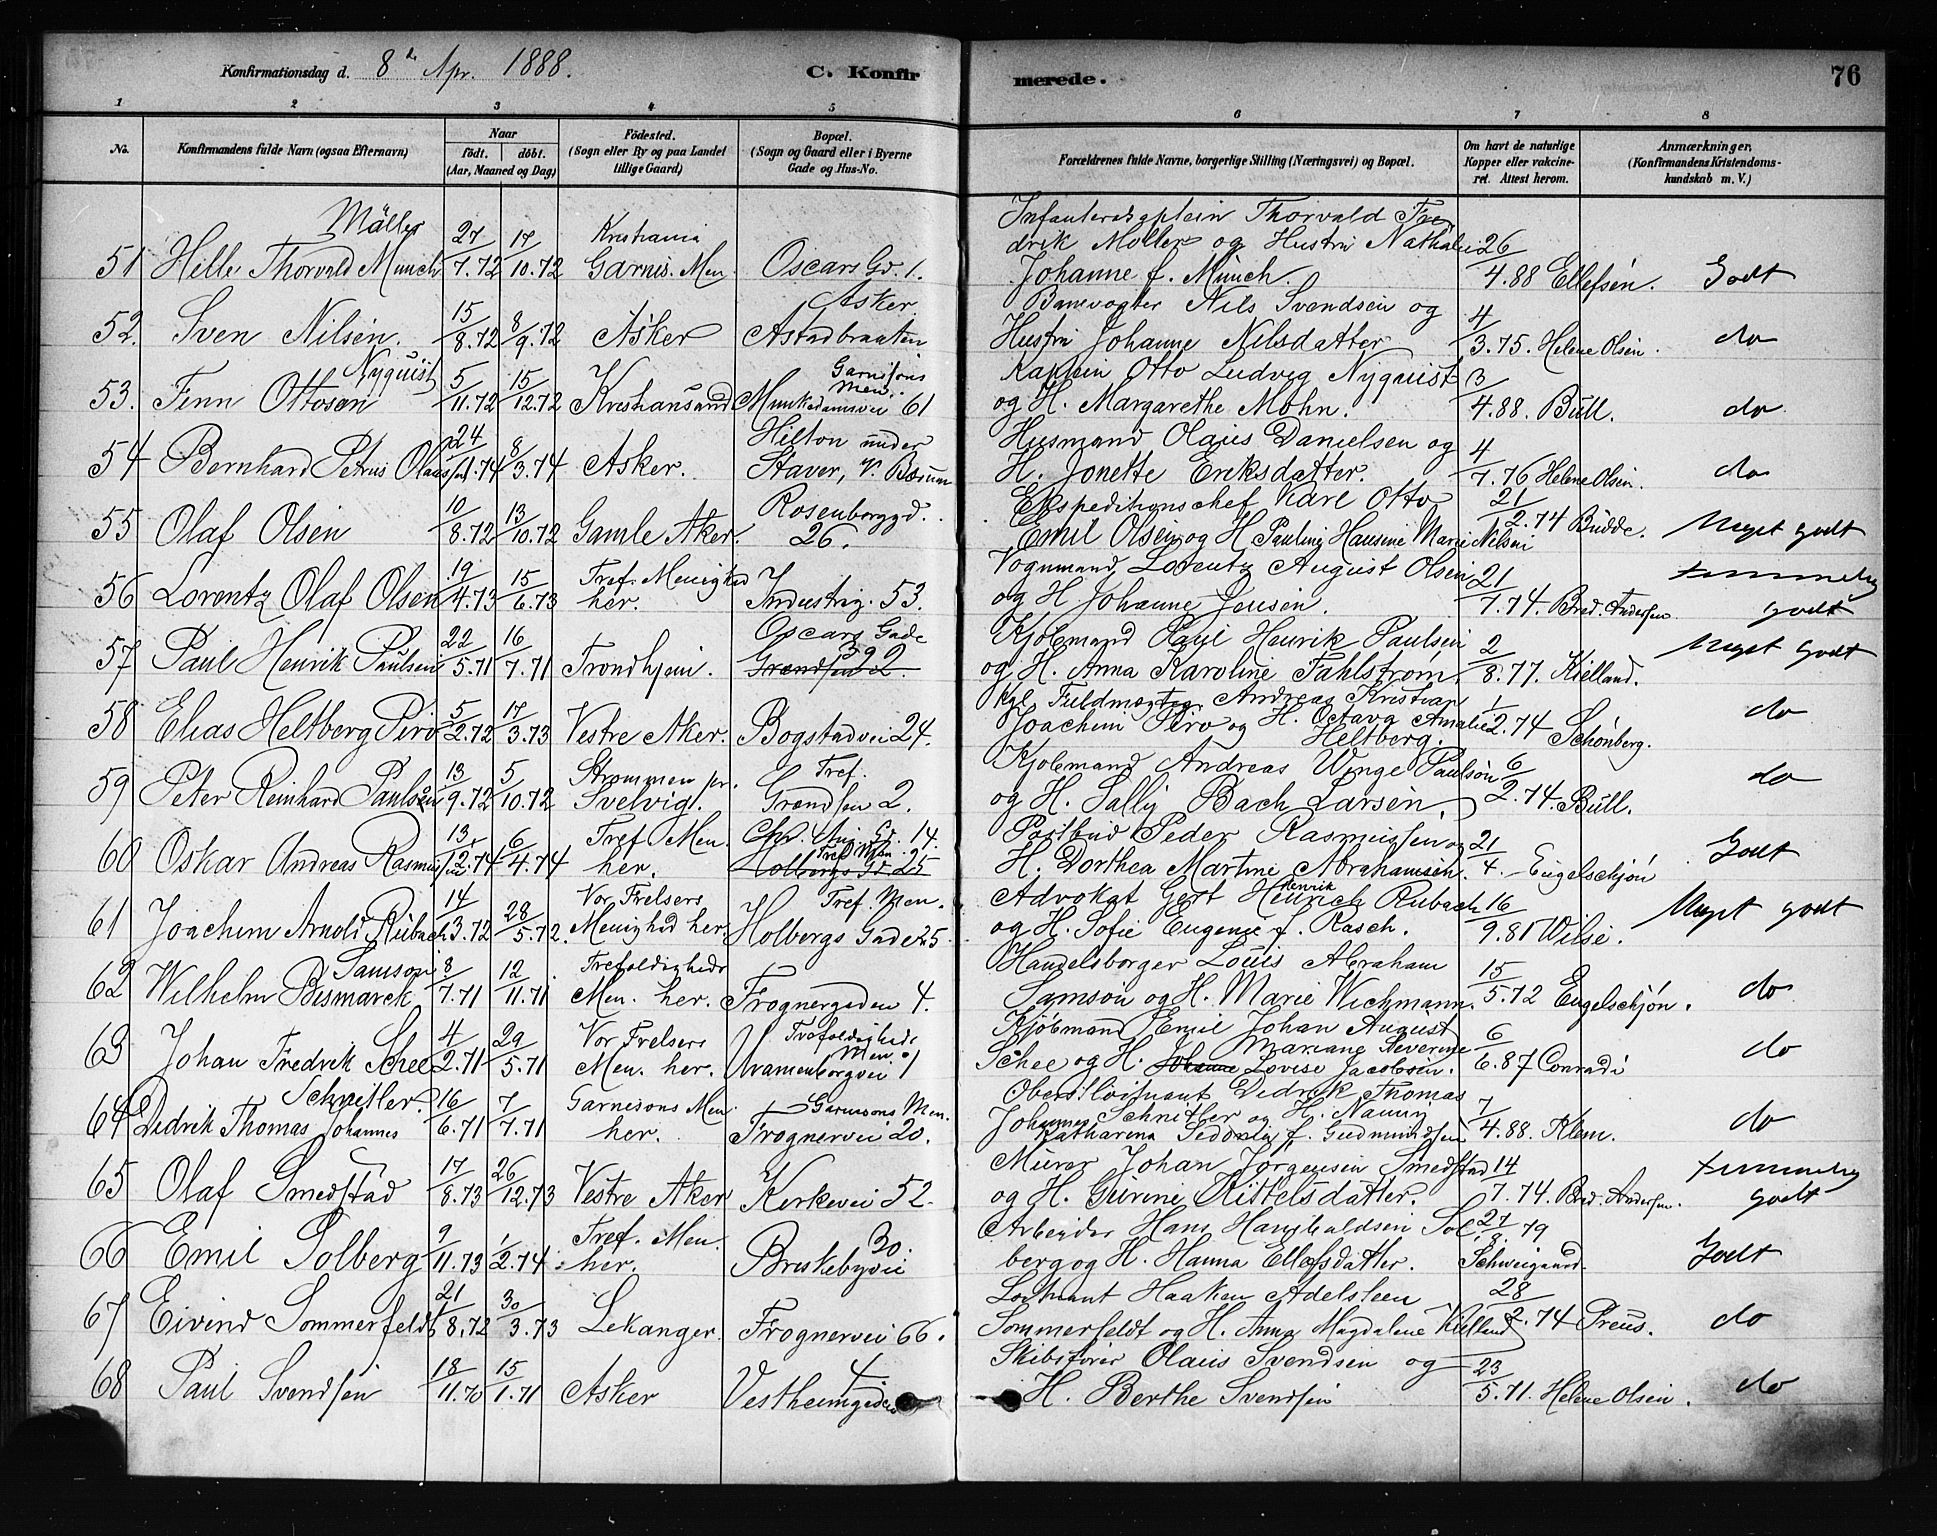 Konfirmationsdag d. 8de Apr. 1888. C. Konfirmerede. 76
1 2 3 4 5 6 7 8
No. Konfirmandens fulde Navn (ogsaa Efternavn) Naar födt. döbt. (Aar, Maaned og Dag) Födested. (Sogn eller By og paa Landet tillige Gaard) Bopæl. (Sogn og Gaard eller i Byerne Gade og Hus-No. Forældrenes fulde Navne, borgerlige Stilling (Næringsvei) og Bopæl. Om havt de naturlige Kopper eller vakcineret. Attest herom. Anmærkninger, (Konfirmandens Kristendomskundskab m. V.)
Möller 27 17 Kristiania Thorvald Fre
drik Moller og Hustru Nathalie 26
51 Hille Thorvald Munch 7.72 10.72 Garnis. Men. Oscars Gd. 1. Johanne f. Munch. 4.88 Ellefsen. Godt
15 8 Asker. Banevogter Nils Svendsen og 4
52. Sven Nilsen. 8.72 9.72 Asker Astadbraaten Hustru Johanne Nilsdatter 3.75. Helene Olsen. do
Nyquist 5 15 Garnisons Men. Kaptein Otto Ludvig Nyquist 3
53. Finn Ottosen 11.72 12.72 Kristiansand Munkedamsvei 61 og H. Margarethe Mohn. 4.88. Bull. do
24 8 Hilton under Husmand Olaus Danielsen og 4
54 Bernhard Petrus Olaussen 1.74 3.74 Asker. Staver, V. Bærum H. Jonette Eriksdatter. 7.76 Helene Olsen. do
10 13 Rosenborggd. Ekspeditionschef Karl Otto 21
55 Olaf Olsen 8.72 10.72 Gamle Aker. 26. Emil Olsen og H. Pauline Hansine Marie Nilsen 2.74 Budde. Meget godt
19 15 Tref. Menighed Vognmand Lorentz August Olsen 21 temmelig
56 Lorentz Olaf Olsen 4.73 6.73 her. Industrig. 53. og H. Johanne Jensen. 7.74. Bred. Andersen godt
22 16 Oscars Gade 39 Kjöbmand Paul Henrik Paulsen 2
57 Paul Henrik Paulsen 5.71 7.71 Trondhjem. Grændsen 2. og H. Anna Karoline Fahlstrøm. 8.77. Kielland. Meget godt
5 17 Kgl. Fuldmægtig Andreas Kristian 1
58 Elias Heltberg Piro 2.72 3.73 Vestre Aker. Bogstadvei 24. Joachim Piro og H. Octava Amalie Heltberg. 2.74 Schönberg. do
13 5 Strømmen pr. Tref. Kjöbmand Andreas Winge Paulsen 6
59 Peter Reinhard Paulsen 9.72 10.72 Svelvig. Grændsen 2. og H. Sally Bach Larsen 2.74. Bull. do
13 6 Tref Men. Chr. Aug. Gd. 14. Postbud Peder Rasmussen og 21
60 Oskar Andreas Rasmussen 12.74 4.74 her. Tref. Men. Holbergs Gd. 25 H. Dorthea Martine Abrahamsen. 4. Engelschjøn Godt
14 28 Vor Frelsers Tref. Men. Advokat Gert Heinrich Henrik Rubach 16
61 Joachim Arnold Rubach 3.72 5.72. Menighed her. Holbergs Gade 25. og H. Sofie Eugenie f. Rasch. 9.81 Wilse. Meget godt
Samson 8 12 Trefoldigheds Handelsborger Louis Abraham 15
62 Wilhelm Bismarck 7.71 11.71 Men. her. Frognergaden 4. Samson og H. Marie Wichmann. 5.72 Engelschjøn. do
4 29 Vor Frelsers Trefoldigheds Men. Kjöbmand Emil Johan August 6
63 Johan Fredrik Schee 2.71 5.71 Men. her. Uranienborgvei 1 Schee og H. Johanne Mariane Severine Lovise Jacobsen. 6.87 Conradi do
Schnitler. 16 7 Garnisons Men. Garnisons Men. Oberstlöitnant Didrik Thomas 7
64 Didrik Thomas Johannes 6.71 7.71 her. Frognervei 20. Johannes Schnitler og H. Nanny Katharina Sidonia f. Gudmundsen 4.88. Klem. do
17 26 Murer Johan Jörgensen Smedstad 14 temmelig
65 Olaf Smedstad 8.73 12.73 Vestre Aker Kirkevei 52. og H. Gurine Kittelsdatter. 7.74. Bred. Andersen. godt
9 1 Tref. Men. 30. Arbeider Hans Haagbaldsen Sol 27 8.79
66 Emil Solberg 11.73 2.74 her. Briskebyvei berg og H. Hanna Ellefsdatter. Schweigaard. Godt
21 30 Löitnant Haaken Adelsteen 28
67 Eivind Sommerfeldt 8.72 3.73 Lekanger. Frognervei 66. Sommerfeldt og H. Anna Magdalene Kielland 2.74 Preus. do
18 15 4. Skibsförer Olaus Svendsen og 23
68 Paul Svendsen 11.70 1.71 Asker Vestheimgaden H. Berthe Svendsen 5.71. Helene Olsen. do